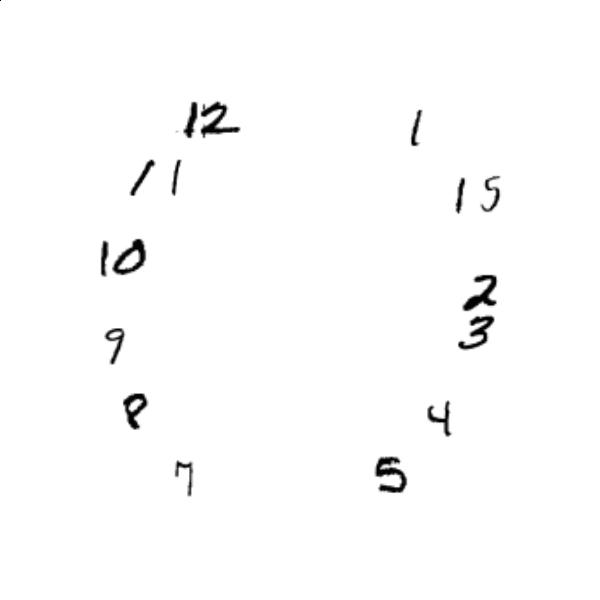 12 1
11 15
10
2
9 3
8 4
7 5